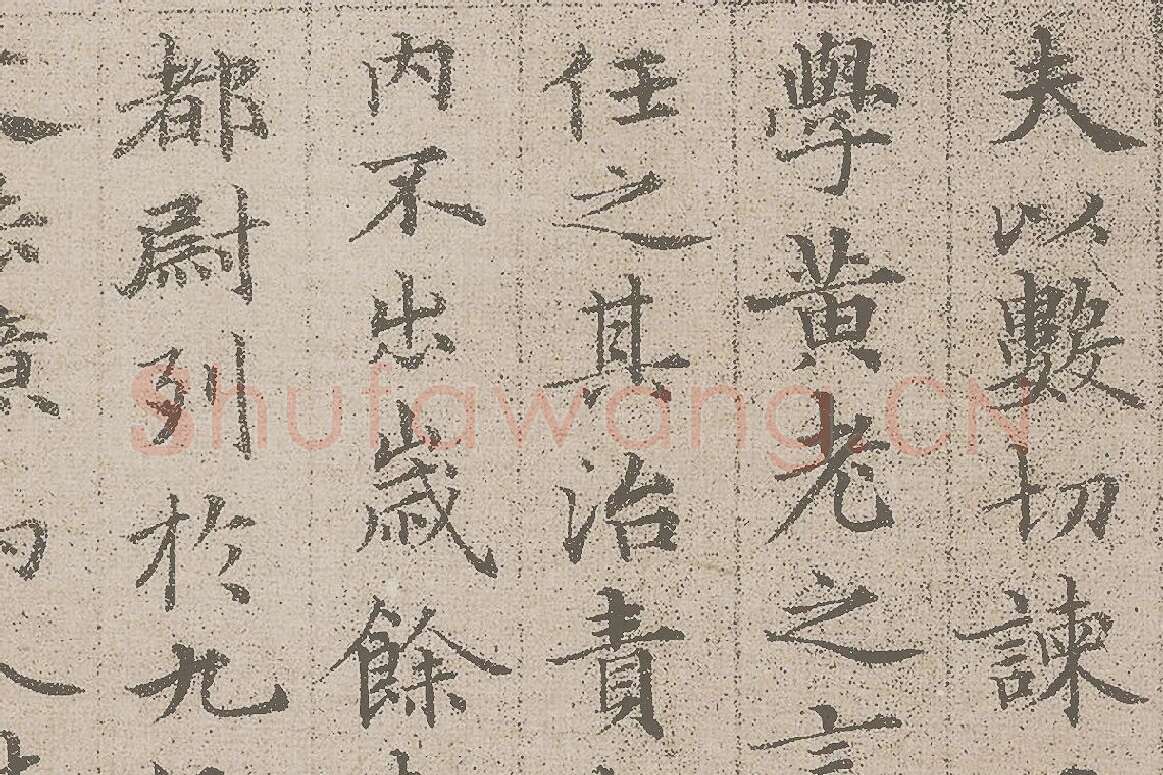 夫以數切諫
學黄老之言
任之其治責
内不出歲餘
都尉列於九
Shufawang.CN